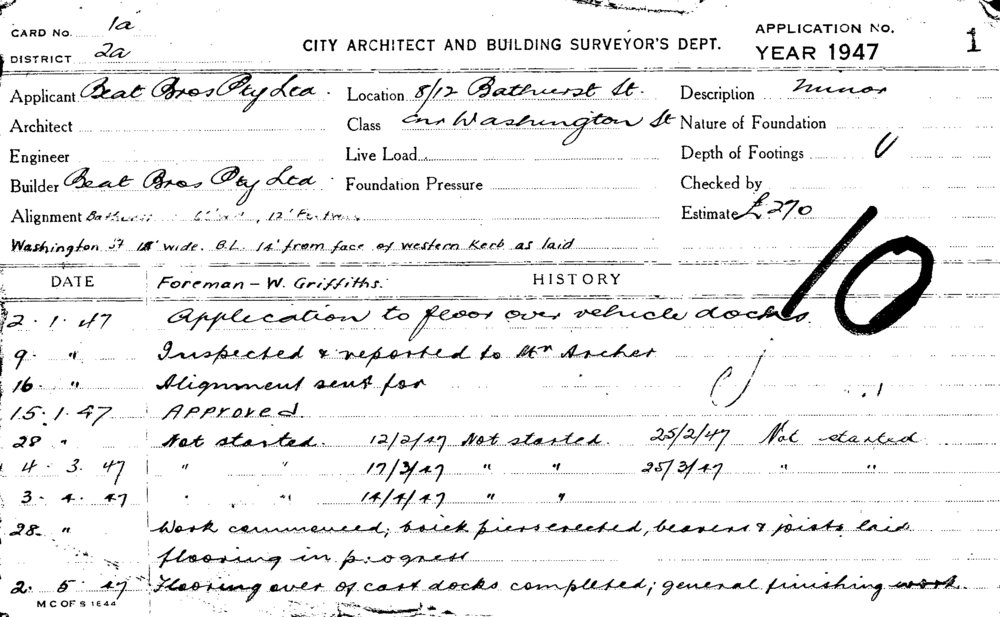 CARD No. 1a
DISTRICT 2a
CITY ARCHITECT AND BUILDING SURVEYOR'S DEPT.
APPLICATION No.
YEAR 1947
1
Applicant Beat Bros Pty Ltd. Location 8/12 Bathurst St. Description Minor
Architect Class Cnr Washington St Nature of Foundation
Engineer Live Load Depth of Footings
Builder Beat Bros Pty Ltd. Foundation Pressure Checked by
Alignment 12' Estimate £270
Washington St wide. B.L. 14' from face of western Kerb as laid
10
DATE Foreman - W. Griffiths. HISTORY
2.1.47 Application to floor over vehicle docks.
9. " Inspected & reported to Mr Archer
16. " Alignment sent for
15.1.47 APPROVED
28 " Not started. 12/2/47 Not started. 25/2/47 Not started
4.3.47 " " 17/3/47 " " 25/3/47 " "
3.4.47 " " 14/4/47 " "
28 " Work commenced; brick piers erected, bearers & joists laid
flooring in progress
2.5.47 Flooring over of cart docks completed; general finishing work.
M C OF S 1644